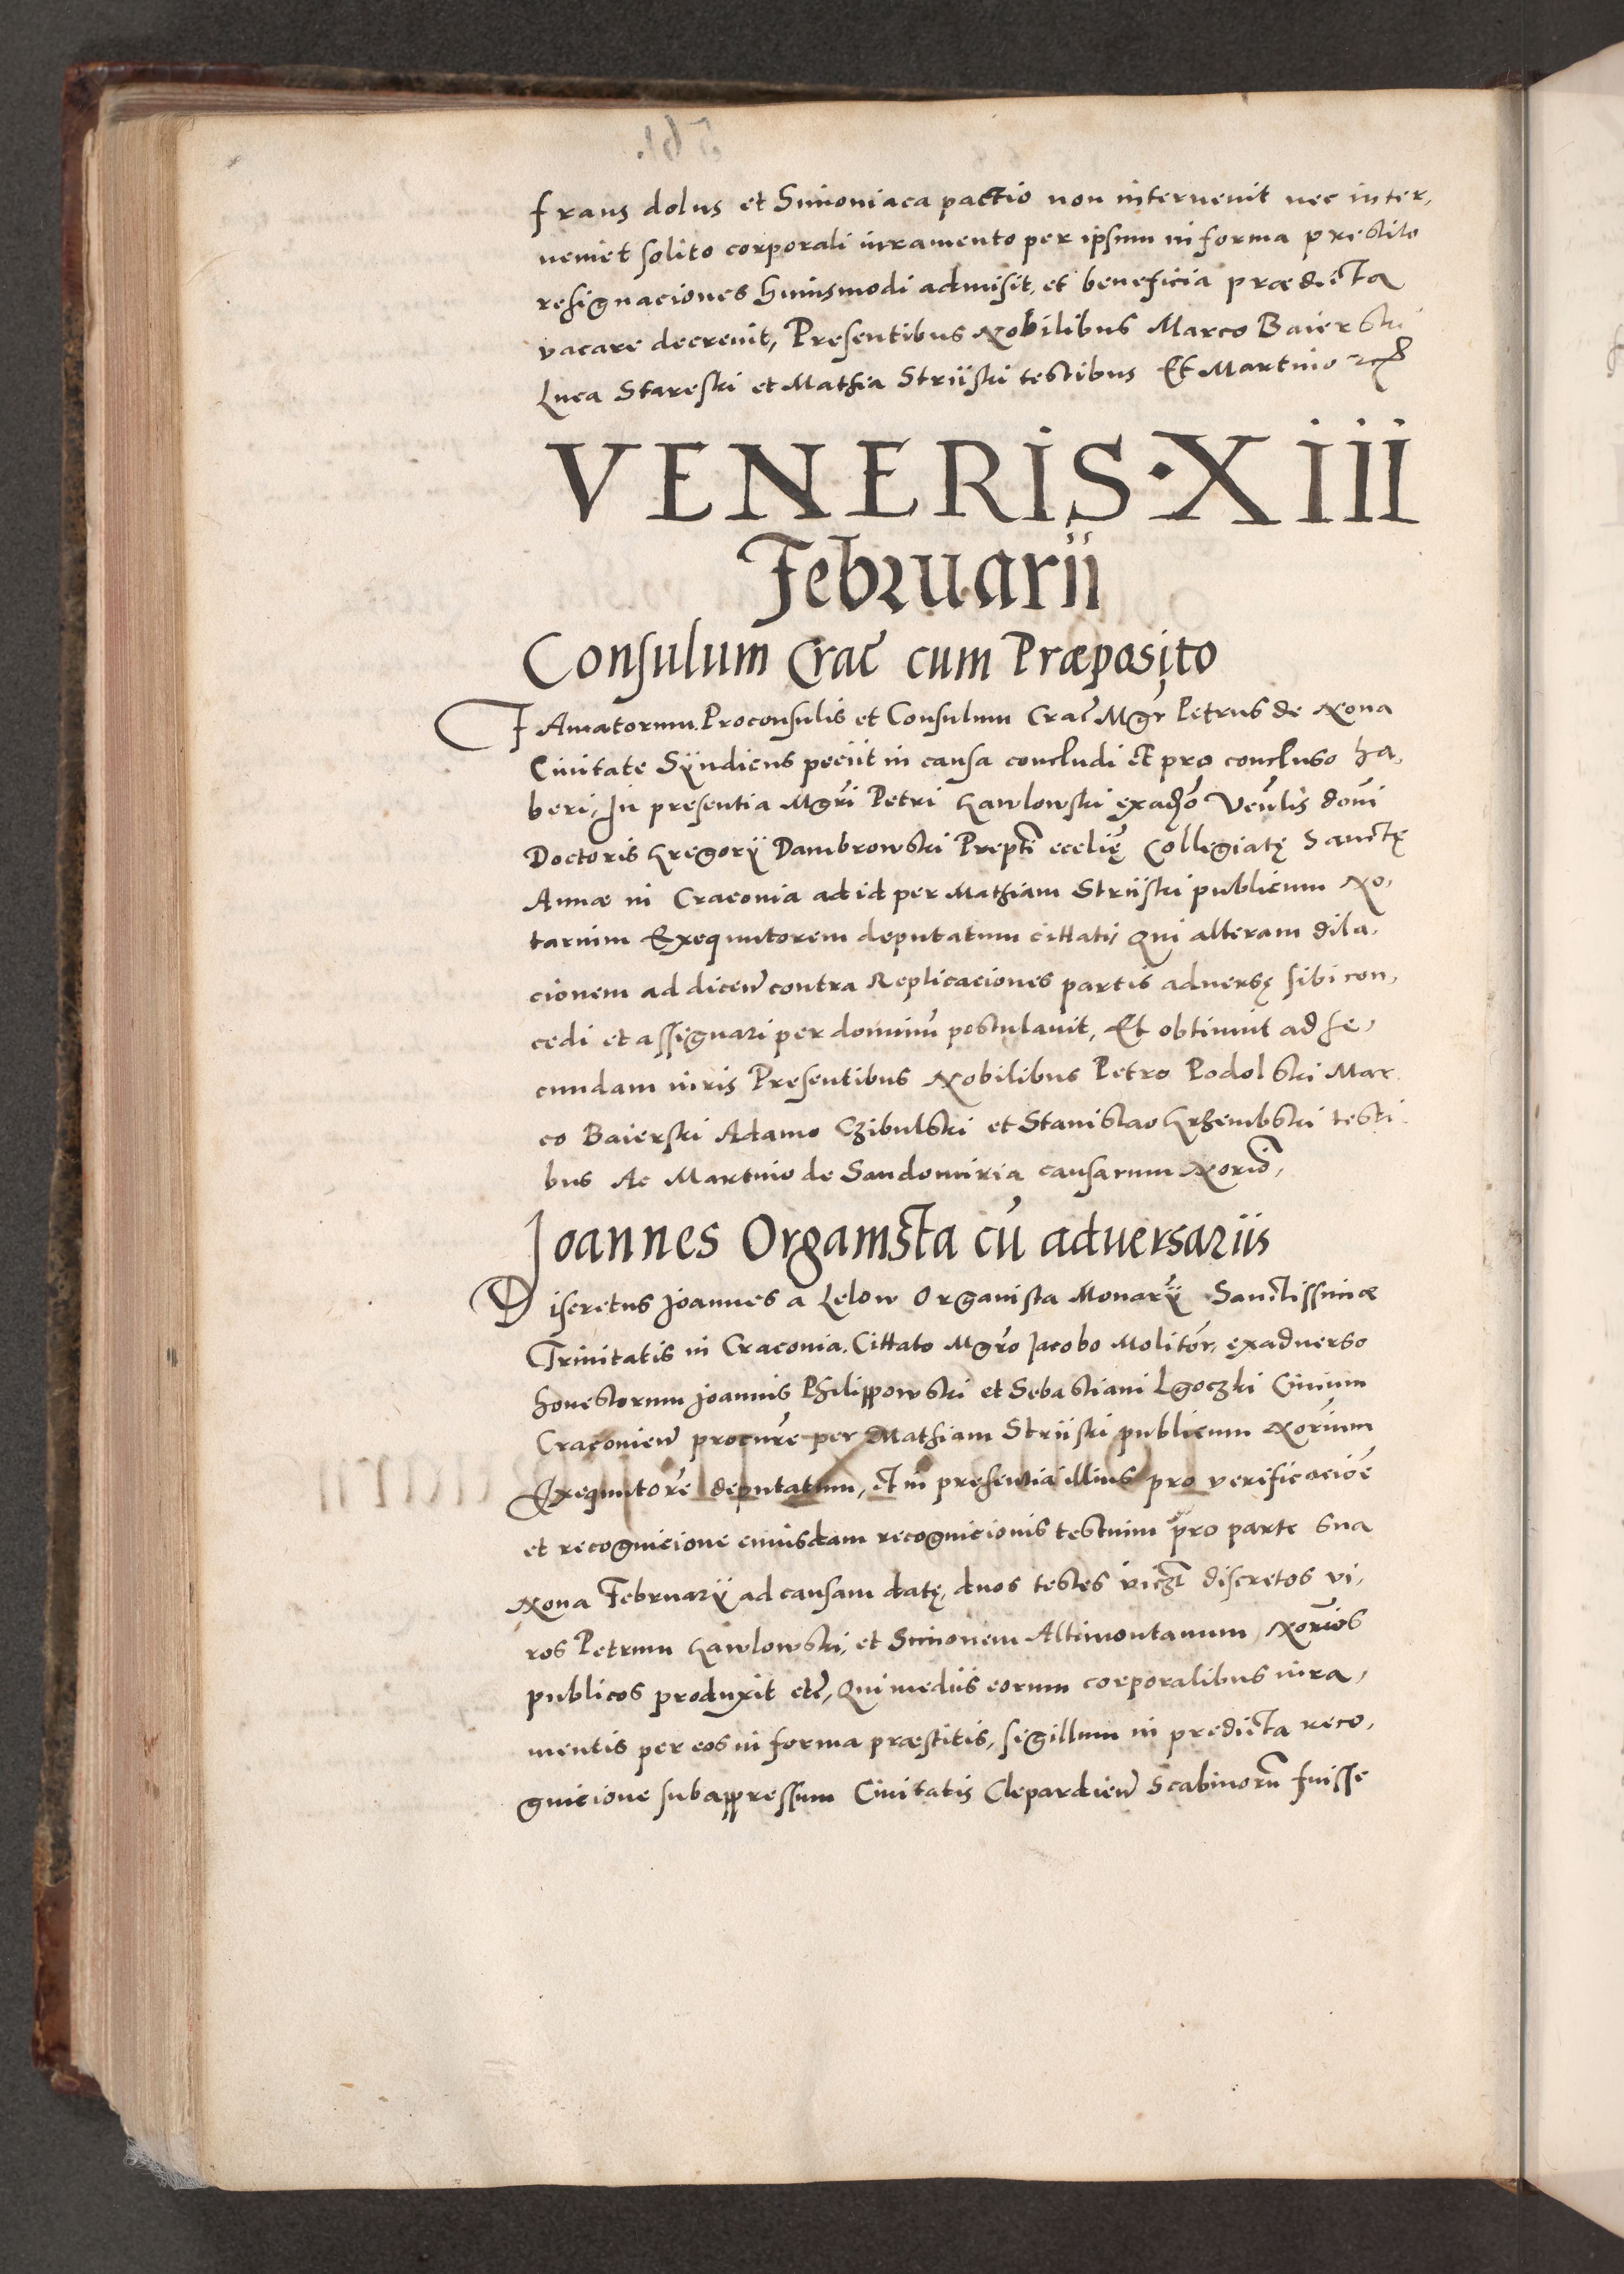 fraus dolus et Simoniaca pactio non intervenit nec inter,
veniet solito corporali iuramento per ipsum in forma prestito
resignaciones huiusmodi admisit, et beneficia prædicta
vacare decrevit, Presentibus Nobilibus Marco Baierski
Luca Stareski et Mathia Striiski testibus Et Martino
VENERIS · XIII
Februarii
Consulum Crac̄ cum Præposito
FAmatorum Proconsulis et Consulum Crac̄ Mgr Petrus de Nona
Civitate Sÿndicus peciit in causa concludi et pro concluso ha,
beri, In presentia Mgri Petri Gawlowski exadṽo Venlis domi
Doctoris Gregorÿ Dambrowski Prepti ecclię Collegiatę Sanctę
Annæ in Cracovia ad id per Mathiam Striiski publicum No,
tarium Exequutorem deputatum cittati, Qui alteram dila,
cionem ad dicen̄ contra Replicaciones partis adversę sibi con,
cedi et assignari per dominū postulavit, Et obtinuit ad se,
cundam iuris Presentibus Nobilibus Petro Podolski Mar
co Baierski Adamo Czibulski et Stanislao Grzembski testi
bus Ac Martino de Sandomiria causarum Norio,
Joannes Organista cū adversariis
Discretus Joannes a Lelow Organista Monarÿ Sanctissimæ
Trinitatis in Cracovia. Cittato Mgro Jacobo Molitor, exadverso
honestorum Joannis Philippowski et Sebastiani Lgoczki Civium
Cracovien̄ procure per Mathiam Striiski publicum Norium
Exequutorē deputatum, et in presentia illius pro verificacioē
et recognicione cuiusdam recognicionis testium pro parte sua
Nona Februarÿ ad causam datę, duos testes viczt discretos vi,
ros Petrum Gawlowski, et Simonem Altimontanum Norios
publicos produxit etc̄, Qui mediis eorum corporalibus iura,
mentis per eos in forma præstitis, sigillum in predicta reco,
gnicione subappressum Civitatis Clepardien̄ Scabinorū fuisse